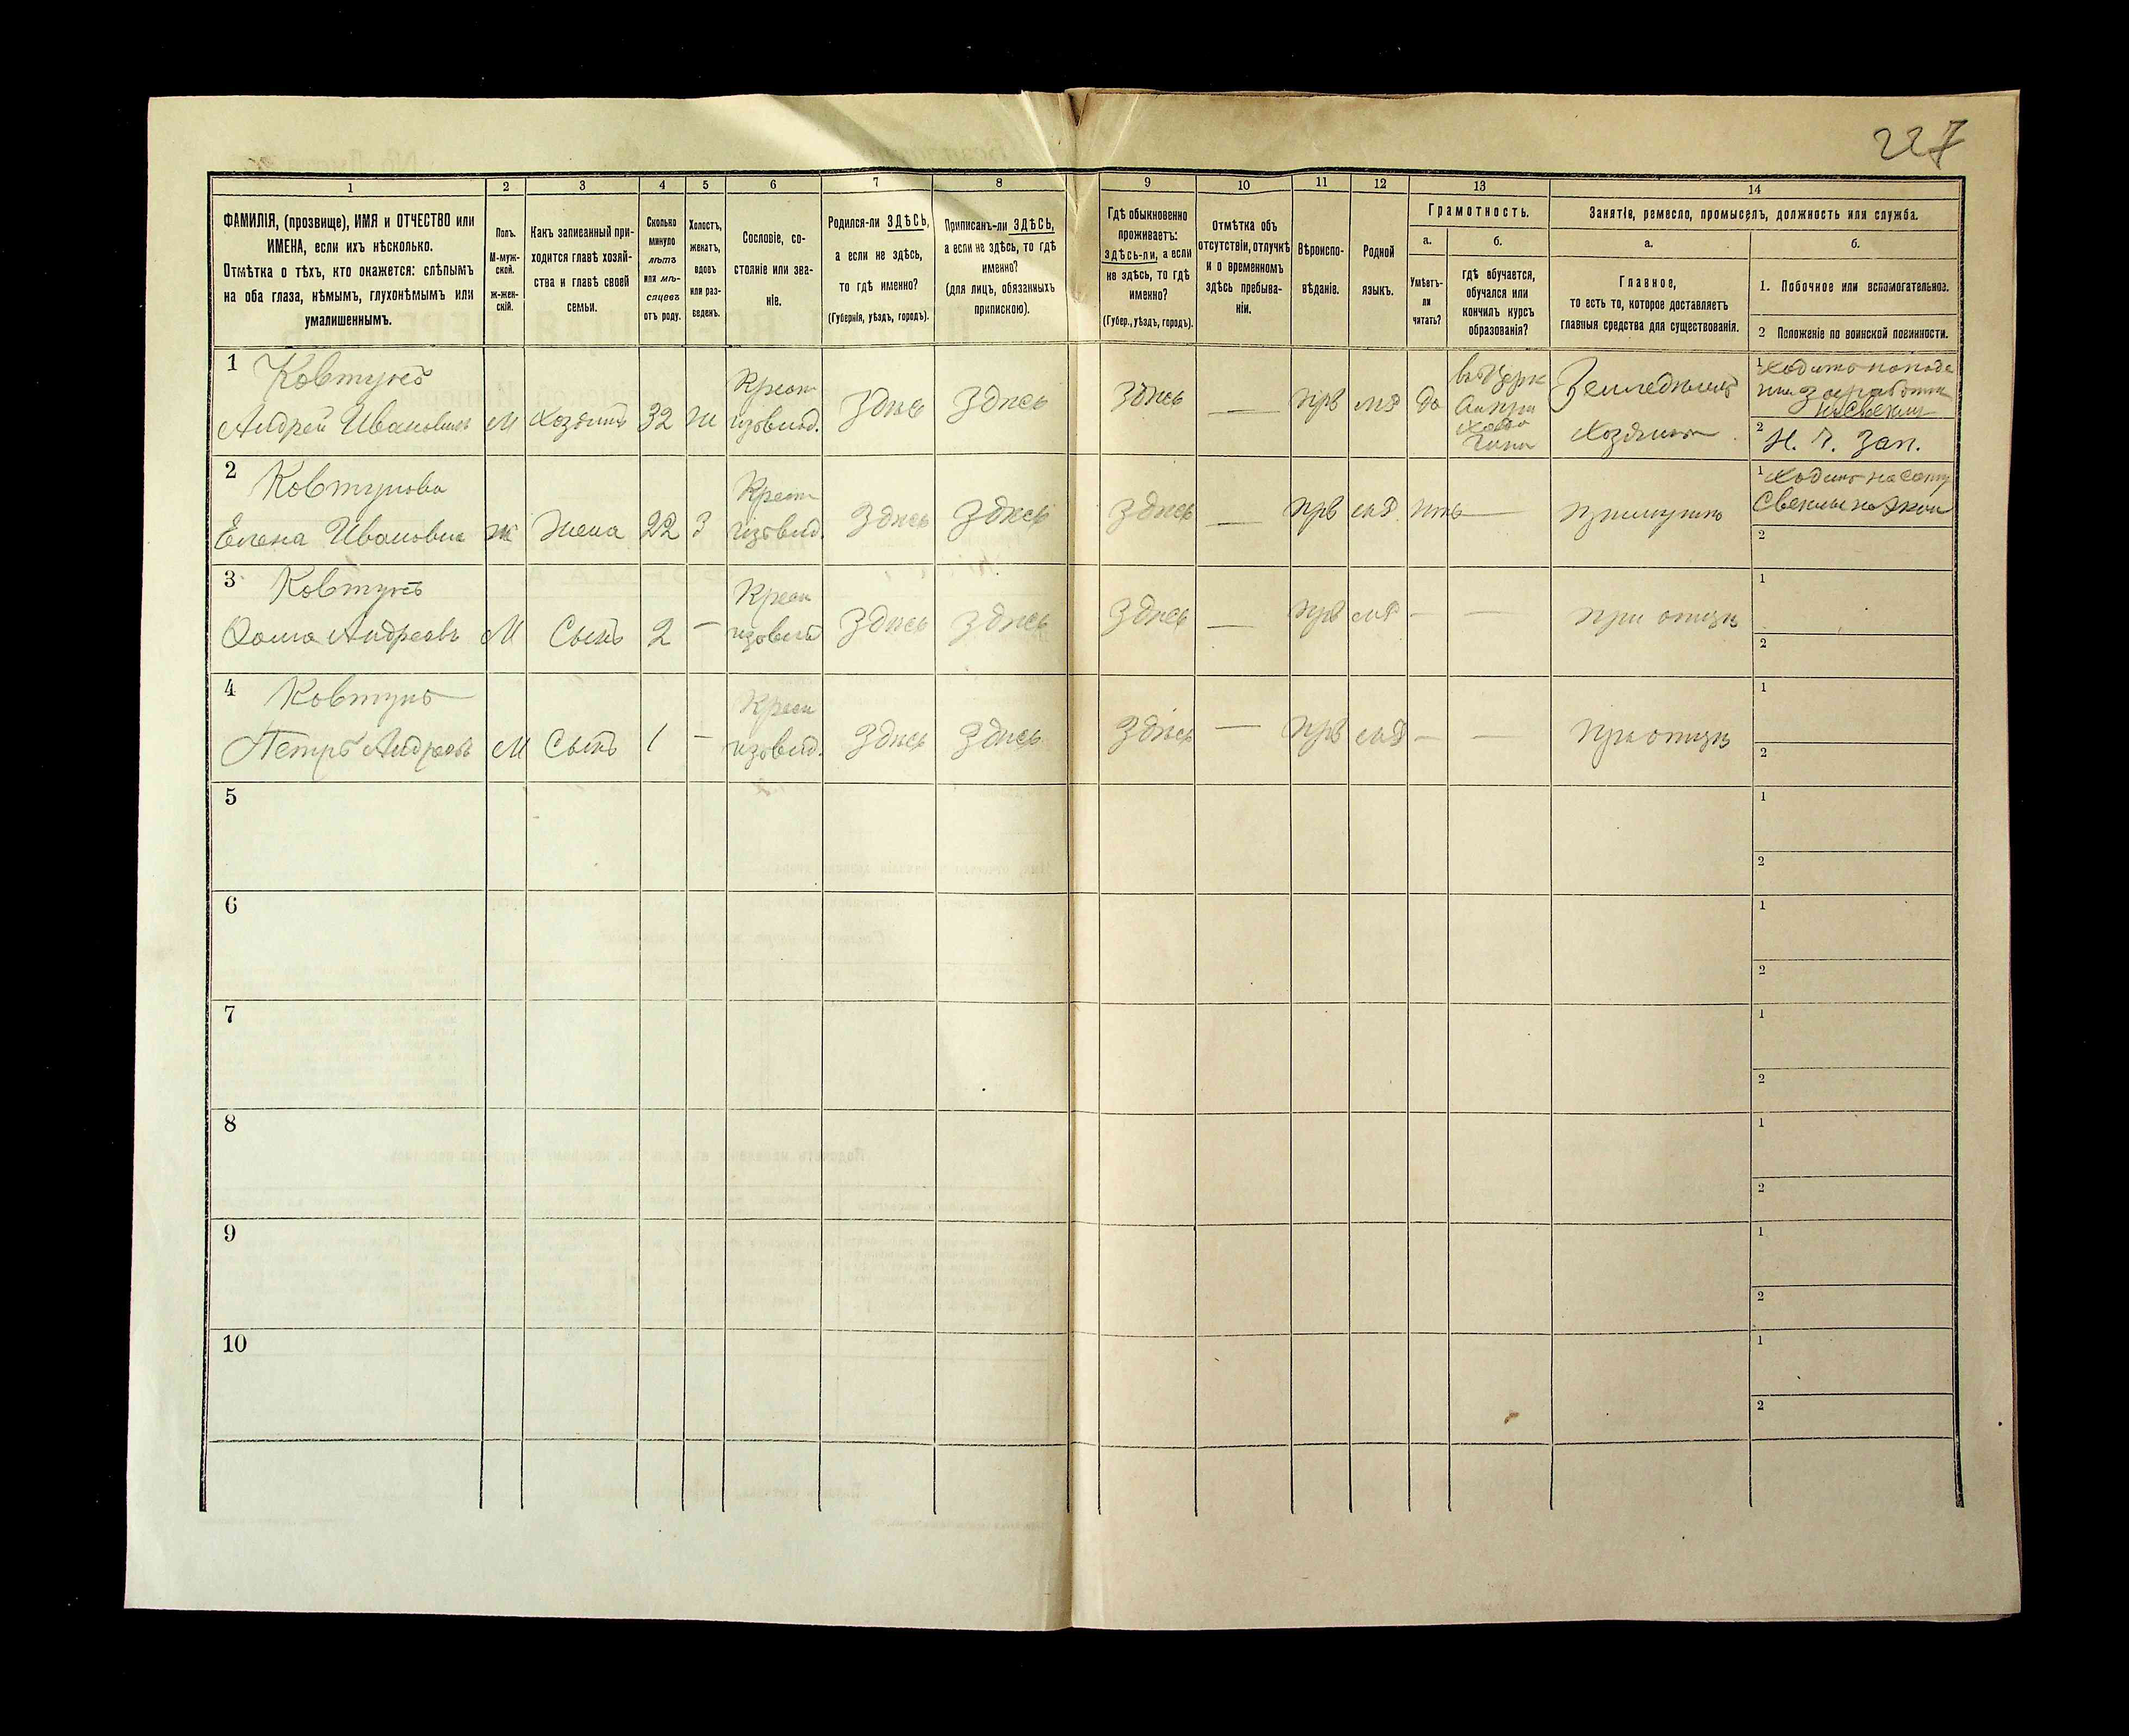 227
1 2 3 4 5 6 7 8 9 10 11 12 13 14
ФАМИЛІЯ, (прозвище), ИМЯ и ОТЧЕСТВО или
ИМЕНА, если ихъ нѣсколько.
Отмѣтка о тѣхъ, кто окажется: слѣпымъ
на оба глаза, нѣмымъ, глухонѣмымъ или
умалишеннымъ.
Полъ.
М-муж-
ской.
ж-жен-
скій.
Какъ записанный при-
ходится главѣ хозяй-
ства и главѣ своей
семьи.
Сколько
минуло
лѣтъ
или мѣ-
сяцевъ
отъ роду.
Холостъ,
женатъ,
вдовъ
или раз-
веденъ.
Сословіе, со-
стояніе или зва-
ніе.
Родился-ли ЗДѢСЬ,
а если не здѣсь,
то гдѣ именно?
(Губернія, уѣздъ, городъ).
Приписанъ-ли ЗДѢСЬ,
а если не здѣсь, то гдѣ
именно?
(для лицъ, обязанныхъ
припискою).
Гдѣ обыкновенно
проживаетъ:
здѣсь-ли, а если
не здѣсь, то гдѣ
именно?
(Губер., уѣздъ, городъ).
Отмѣтка объ
отсутствіи, отлучкѣ
и о временномъ
здѣсь пребыва-
ніи.
Вѣроиспо-
вѣданіе.
Родной
языкъ.
Грамотность.
а.
Умѣетъ-
ли
читать?
б.
гдѣ обучается,
обучался или
кончилъ курсъ
образованія?
Занятіе, ремесло, промыселъ, должность или служба.
а.
Главное,
то есть то, которое доставляетъ
главныя средства для существованія.
б.
1. Побочное или вспомогательное.
2 Положеніе по воинской повинности.
1 Ковтунъ
Андрей Ивановичъ М Хозяинъ 32 ж
Крест
изъ влад.
Здѣсь Здѣсь Здѣсь — прв мл да
въ Церк
Земледѣлецъ
Хозяинъ
1
2 Н. Ч. Зап.
2 Ковтунова
Елена Ивановна ж Жена 22 З
Крест
изъ влад.
Здѣсь Здѣсь Здѣсь — прв мл нѣтъ — при мужѣ
1
2
3 Ковтунъ
Ѳома Андреевъ М Сынъ 2 —
Крест
изъ влад
Здѣсь Здѣсь Здѣсь — прв мл — — при отцѣ
1
2
4 Ковтунъ
Петръ Андреевъ М Сынъ 1 —
Крест
изъ влад.
Здѣсь Здѣсь Здѣсь — прв мл — — при отцѣ
1
2
5 1
2
6 1
2
7 1
2
8 1
2
9 1
2
10 1
2